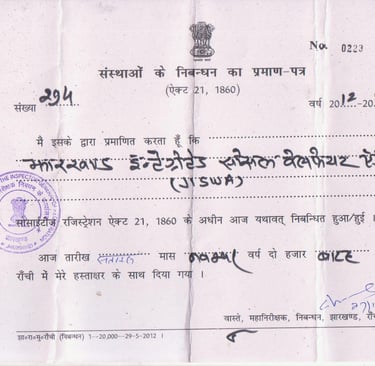 No. 0223
संस्थाओं के निबन्धन का प्रमाण-पत्र
(ऐक्ट 21, 1860)
संख्या 294 वर्ष 2012
मै इसके द्वारा प्रमाणित करता हूँ कि
झारखण्ड इन्टेग्रेटेड सोसल वेलफेयर
(JISWA)
सोसाईटीज रजिस्ट्रेशन ऐक्ट 21, 1860 के अधीन आज यथावत् निबन्धित हुआ/हुई।
आज तारीख मास नवम्बर वर्ष दो हजार बारह
राँची में मेरे हस्ताक्षर के साथ दिया गया ।
वास्ते, महानिरीक्षक, निबन्धन, झारखण्ड,
झा०रा०मु०राँची (निबन्धन) 1--20,000--29-5-2012 ।